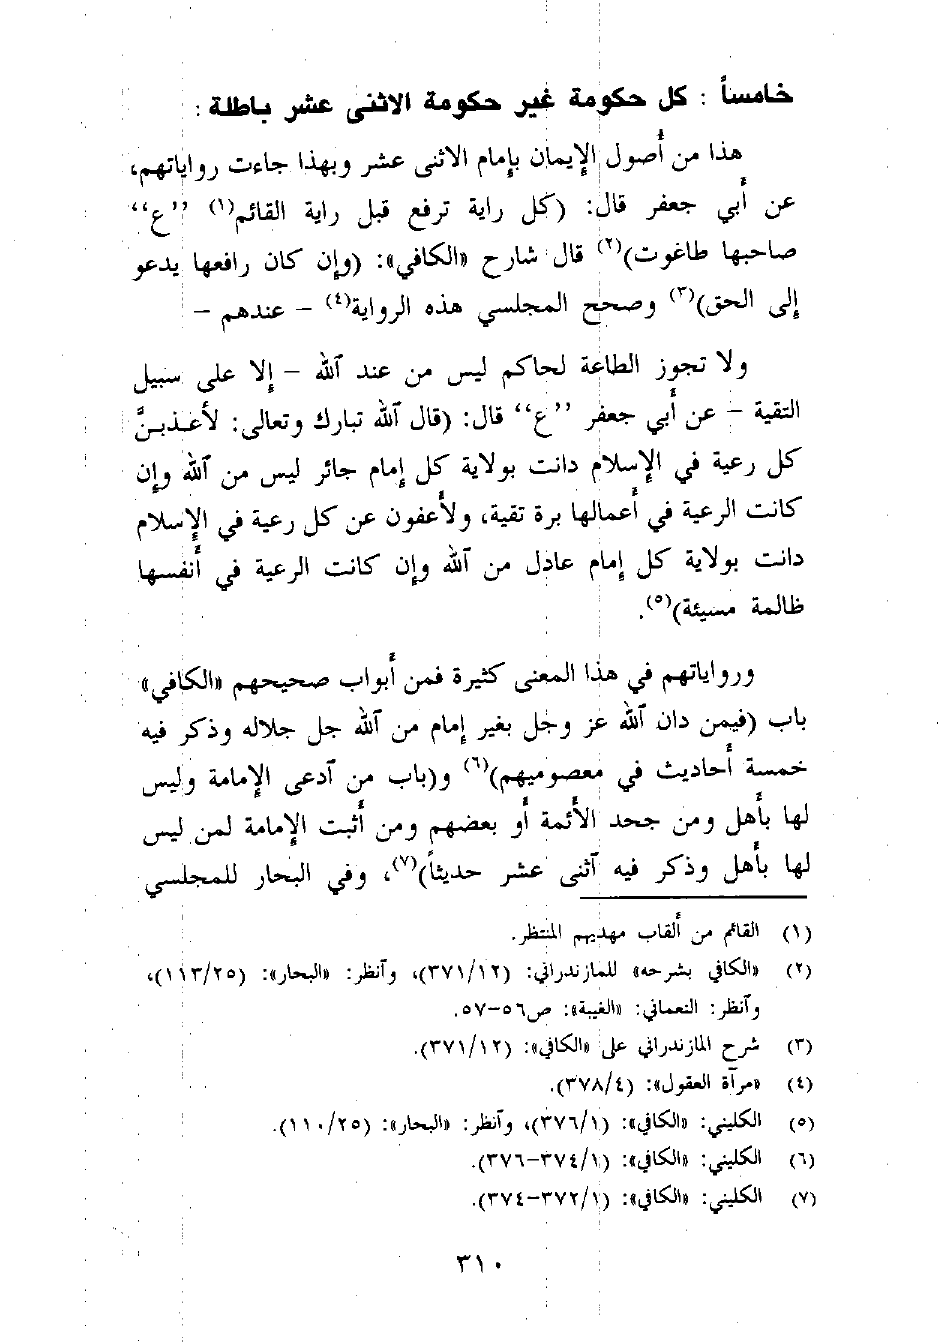 خامساً : كل حكومة غير حكومة الاثنى عشر باطلة :
هذا من أصول الإيمان بإمام الاثنى عشر وبهذا جاءت رواياتهم،
عن أبي جعفر قال: (كل راية ترفع قبل راية القائم(١) ”ع“
صاحبها طاغوت)(٢) قال شارح «الكافي»: (وإن كان رافعها يدعو
إلى الحق)(٣) وصحح المجلسي هذه الرواية(٤) – عندهم –
ولا تجوز الطاعة لحاكم ليس من عند الله – إلا على سبيل
التقية – عن أبي جعفر ”ع“ قال: (قال الله تبارك وتعالى: لأعذبنَّ
كل رعية في الإسلام دانت بولاية كل إمام جائر ليس من الله وإن
كانت الرعية في أعمالها برة تقية، ولأعفون عن كل رعية في الإسلام
دانت بولاية كل إمام عادل من الله وإن كانت الرعية في أنفسها
ظالمة مسيئة)(٥).
ورواياتهم في هذا المعنى كثيرة فمن أبواب صحيحهم «الكافي»
باب (فيمن دان الله عز وجل بغير إمام من الله جل جلاله وذكر فيه
خمسة أحاديث في معصوميهم)(٦) و(باب من آدعى الإمامة وليس
لها بأهل ومن جحد الأئمة أو بعضهم ومن أثبت الإمامة لمن ليس
لها بأهل وذكر فيه آثنى عشر حديثاً)(٧)، وفي البحار للمجلسي
(١) القائم من ألقاب مهديهم المنتظر.
(٢) «الكافي بشرحه» للمازندراني: (٣٧١/١٢)، وآنظر: «البحار»: (١١٣/٢٥)،
وآنظر: النعماني: «الغيبة»: ص٥٦–٥٧.
(٣) شرح المازندراني على «الكافي»: (٣٧١/١٢).
(٤) «مرآة العقول»: (٣٧٨/٤).
(٥) الكليني: «الكافي»: (٣٧٦/١)، وآنظر: «البحار»: (١١٠/٢٥).
(٦) الكليني: «الكافي»: (٣٧٤/١–٣٧٦).
(٧) الكليني: «الكافي»: (٣٧٢/١–٣٧٤).
٣١٠